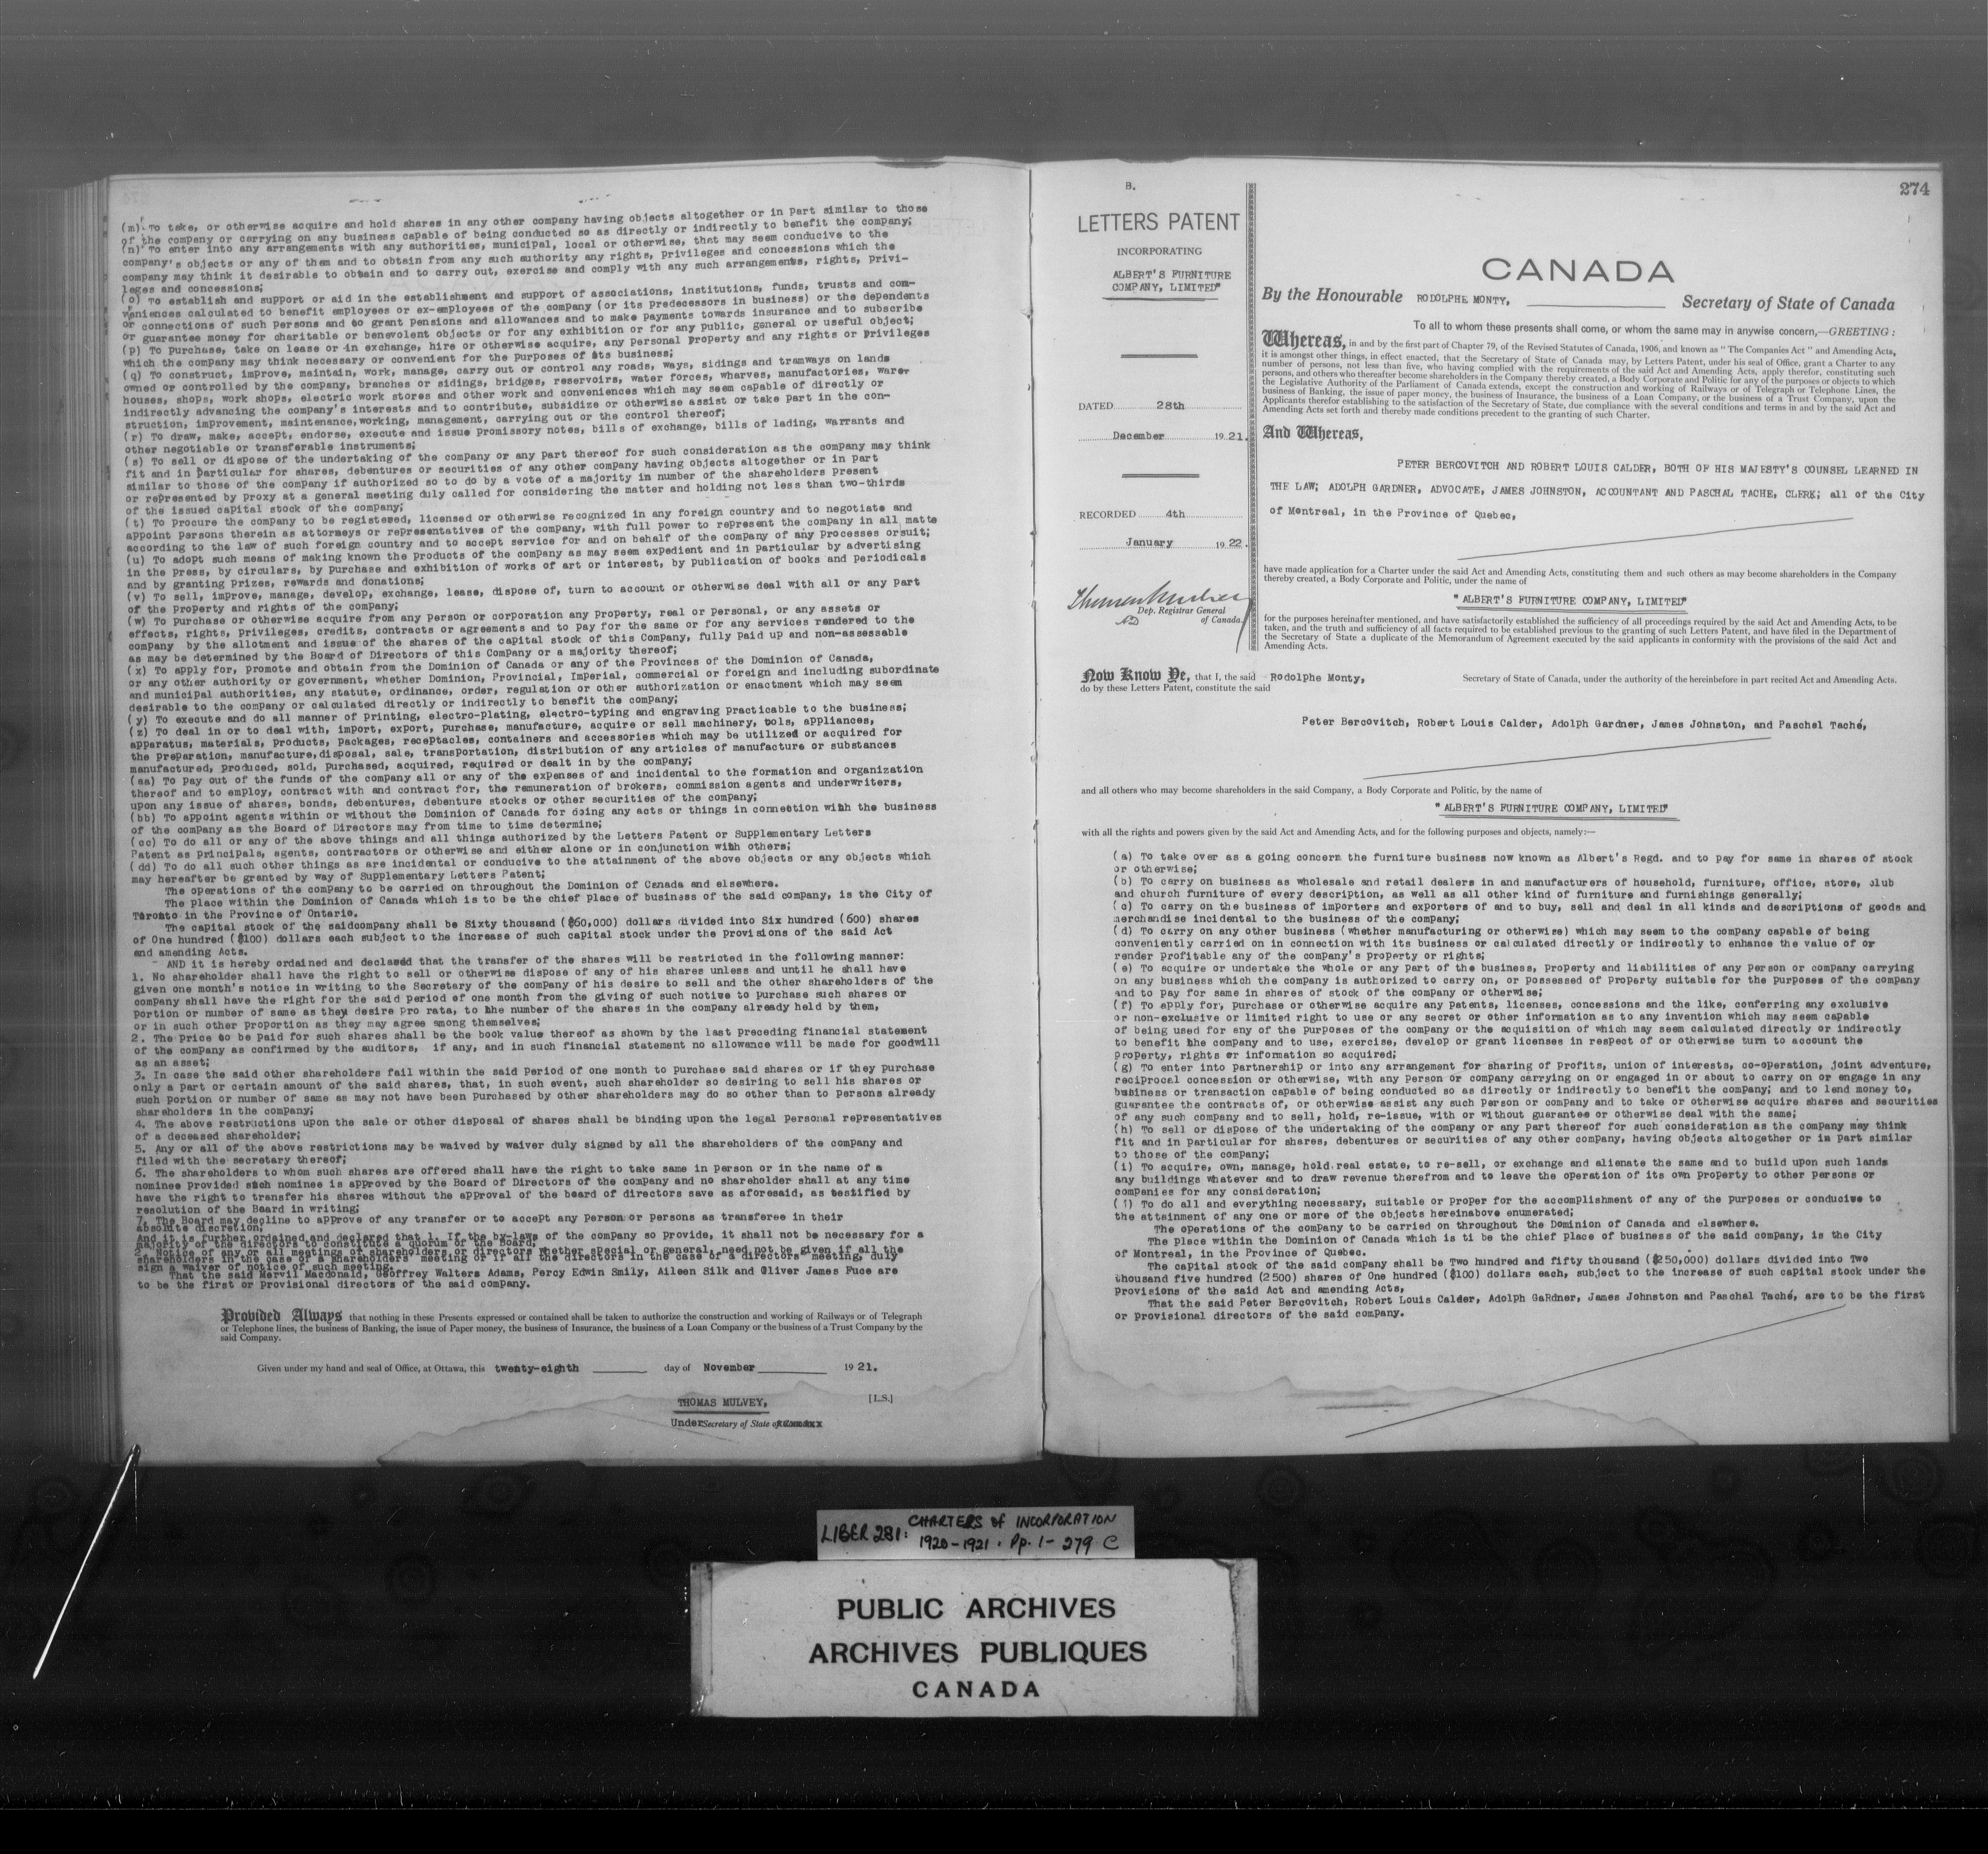 (m) To take, or otherwise acquire and hold shares in any other company having objects altogether or in part similar to those
of the company or carrying on any business capable of being conducted so as directly or indirectly to benefit the company;
(n) To enter into any arrangements with any authorities, municipal, local or otherwise, that may seem conducive to the
company's objects or any of them and to obtain from any such authority any rights, privileges and concessions which the
company may think it desirable to obtain and to carry out, exercise and comply with any such arrangements, rights, privi-
leges and concessions;
(o) To establish and support or aid in the establishment and support of associations, institutions, funds, trusts and con-
veniences calculated to benefit employees or ex-employees of the company (or its predecessors in business) or the dependents
or connections of such persons and to grant pensions and allowances and to make payments towards insurance and to subscribe
or guarantee money for charitable or benevolent objects or for any exhibition or for any public, general or useful object;
(p) To purchase, take on lease or in exchange, hire or otherwise acquire, any personal property and any rights or privileges
which the company may think necessary or convenient for the purposes of its business;
(q) To construct, improve, maintain, work, manage, carry out or control any roads, ways, sidings and tramways on lands
owned or controlled by the company, branches or sidings, bridges, reservoirs, water forces, wharves, manufactories, warer
houses, shops, work shops, electric work stores and other work and conveniences which may seem capable of directly or
indirectly advancing the company's interests and to contribute, subsidize or otherwise assist or take part in the con-
struction, improvement, maintenance,working, management, carrying out or the control thereof;
(r) To draw, make, accept, endorse, execute and issue promissory notes, bills of exchange, bills of lading, warrants and
other negotiable or transferable instruments;
(s) To sell or dispose of the undertaking of the company or any part thereof for such consideration as the company may think
fit and in particular for shares, debentures or securities of any other company having objects altogether or in part
similar to those of the company if authorized so to do by a vote of a majority in number of the shareholders present
or represented by proxy at a general meeting duly called for considering the matter and holding not less than two-thirds
of the issued capital stock of the company;
(t) To procure the company to be registered, licensed or otherwise recognized in any foreign country and to negotiate and
appoint persons therein as attorneys or representatives of the company, with full power to represent the company in all matte
according to the law of such foreign country and to accept service for and on behalf of the company of any processes orsuit;
(u) To adopt such means of making known the products of the company as may seem expedient and in particular by advertising
in the press, by circulars, by purchase and exhibition of works of art or interest, by publication of books and periodicals
and by granting prizes, rewards and donations;
(v) To sell, improve, manage, develop, exchange, lease, dispose of, turn to account or otherwise deal with all or any part
of the property and rights of the company;
(w) To purchase or otherwise acquire from any person or corporation any property, real or personal, or any assets or
effects, rights, privileges, credits, contracts or agreements and to pay for the same or for any services rendered to the
company by the allotment and issue of the shares of the capital stock of this Company, fully paid up and non-assessable
as may be determined by the Board of Directors of this Company or a majority thereof;
(x) To apply for, promote and obtain from the Dominion of Canada or any of the Provinces of the Dominion of Canada,
or any other authority or government, whether Dominion, Provincial, Imperial, commercial or foreign and including subordinate
and municipal authorities, any statute, ordinance, order, regulation or other authorization or enactment which may seem
desirable to the company or calculated directly or indirectly to benefit the company;
(y) To execute and do all manner of printing, electro-plating, electro-typing and engraving practicable to the business;
(z) To deal in or to deal with, import, export, purchase, manufacture, acquire or sell machinery, tools, appliances,
apparatus, materials, products, packages, receptacles, containers and accessories which may be utilized or acquired for
the preparation, manufacture,disposal, sale, transportation, distribution of any articles of manufacture or substances
manufactured, produced, sold, purchased, acquired, required or dealt in by the company;
(aa) To pay out of the funds of the company all or any of the expenses of and incidental to the formation and organization
thereof and to employ, contract with and contract for, the remuneration of brokers, commission agents and underwriters,
upon any issue of shares, bonds, debentures, debenture stocks or other securities of the company;
(bb) To appoint agents within or without the Dominion of Canada for doing any acts or things in connection with the business
of the company as the Board of Directors may from time to time determine;
(cc) To do all or any of the above things and all things authorized by the Letters Patent or Supplementary Letters
Patent as principals, agents, contractors or otherwise and either alone or in conjunction with others;
(dd) To do all such other things as are incidental or conducive to the attainment of the above objects or any objects which
may hereafter be granted by way of Supplementary Letters Patent;
The operations of the company to be carried on throughout the Dominion of Canada and elsewhere.
The place within the Dominion of Canada which is to be the chief place of business of the said company, is the City of
Toronto in the Province of Ontario.
The capital stock of the saidcompany shall be Sixty thousand ($60,000) dollars divided into Six hundred (600) shares
of One hundred ($100) dollars each subject to the increase of such capital stock under the provisions of the said Act
and amending Acts.
AND it is hereby ordained and declared that the transfer of the shares will be restricted in the following manner:
1. No shareholder shall have the right to sell or otherwise dispose of any of his shares unless and until he shall have
given one month's notice in writing to the Secretary of the company of his desire to sell and the other shareholders of the
company shall have the right for the said period of one month from the giving of such notice to purchase such shares or
portion or number of same as they desire pro rata, to the number of the shares in the company already held by them,
or in such other proportion as they may agree among themselves;
2. The price to be paid for such shares shall be the book value thereof as shown by the last preceding financial statement
of the company as confirmed by the auditors, if any, and in such financial statement no allowance will be made for goodwill
as an asset;
3. In case the said other shareholders fail within the said period of one month to purchase said shares or if they purchase
only a part or certain amount of the said shares, that, in such event, such shareholder so desiring to sell his shares or
such portion or number of same as may not have been purchased by other shareholders may do so other than to persons already
shareholders in the company;
4. The above restructions upon the sale or other disposal of shares shall be binding upon the legal personal representatives
of a deceased shareholder;
5. Any or all of the above restrictions may be waived by waiver duly signed by all the shareholders of the company and
filed with the secretary thereof;
6. The shareholders to whom such shares are offered shall have the right to take same in person or in the name of a
nominee provided such nominee is approved by the Board of Directors of the company and no shareholder shall at any time
have the right to transfer his shares without the approval of the board of directors save as aforesaid, as testified by
resolution of the Board in writing;
7. The Board may decline to approve of any transfer or to accept any person or persons as transferee in their
absolute discretion;
And it is further ordained and declared that 1. If the by-laws of the company so provide, it shall not be necessary for a
majority of the directors to constitute a quorum of the Board,
2. Notice of any or all meetings of shareholders or directors whether special or general, need not be given if all the
shareholders in the case of a shareholders' meeting or if all the directors in the case of a directors' meeting, duly
sign a waiver of notice of such meeting.
That the said Mervil Macdonald, Geoffrey Walters Adams, Percy Edwin Smily, Aileen Silk and Oliver James Fuce are
to be the first or provisional directors of the said company.
Provided Always that nothing in these Presents expressed or contained shall be taken to authorize the construction and working of Railways or of Telegraph
or Telephone lines, the business of Banking, the issue of Paper money, the business of Insurance, the business of a Loan Company or the business of a Trust Company by the
said Company.
Given under my hand and seal of Office, at Ottawa, this twenty-eighth day of November 1921.
THOMAS MULVEY, [L.S.]
Under Secretary of State
B.
LETTERS PATENT
INCORPORATING
ALBERT'S FURNITURE
COMPANY, LIMITED"
DATED 28th
December 1921.
RECORDED 4th
January 1922.
Dep. Registrar General
of Canada.
274
CANADA
By the Honourable RODOLPHE MONTY, Secretary of State of Canada
To all to whom these presents shall come, or whom the same may in anywise concern,—GREETING:
Whereas, in and by the first part of Chapter 79, of the Revised Statutes of Canada, 1906, and known as "The Companies Act" and Amending Acts,
it is amongst other things, in effect enacted, that the Secretary of State of Canada may, by Letters Patent, under his seal of Office, grant a Charter to any
number of persons, not less than five, who having complied with the requirements of the said Act and Amending Acts, apply therefor, constituting such
persons, and others who thereafter become shareholders in the Company thereby created, a Body Corporate and Politic for any of the purposes or objects to which
the Legislative Authority of the Parliament of Canada extends, except the construction and working of Railways or of Telegraph or Telephone Lines, the
business of Banking, the issue of paper money, the business of Insurance, the business of a Loan Company, or the business of a Trust Company, upon the
Applicants therefor establishing to the satisfaction of the Secretary of State, due compliance with the several conditions and terms in and by the said Act and
Amending Acts set forth and thereby made conditions precedent to the granting of such Charter.
And Whereas,
PETER BERCOVITCH AND ROBERT LOUIS CALDER, BOTH OF HIS MAJESTY'S COUNSEL LEARNED IN
THE LAW; ADOLPH GARDNER, ADVOCATE, JAMES JOHNSTON, ACCOUNTANT AND PASCHAL TACHE, CLERK; all of the City
of Montreal, in the Province of Quebec,
have made application for a Charter under the said Act and Amending Acts, constituting them and such others as may become shareholders in the Company
thereby created, a Body Corporate and Politic, under the name of
"ALBERT'S FURNITURE COMPANY, LIMITED"
for the purposes hereinafter mentioned, and have satisfactorily established the sufficiency of all proceedings required by the said Act and Amending Acts, to be
taken, and the truth and sufficiency of all facts required to be established previous to the granting of such Letters Patent, and have filed in the Department of
the Secretary of State a duplicate of the Memorandum of Agreement executed by the said applicants in conformity with the provisions of the said Act and
Amending Acts.
Now Know Ye, that I, the said Rodolphe Monty, Secretary of State of Canada, under the authority of the hereinbefore in part recited Act and Amending Acts.
do by these Letters Patent, constitute the said
Peter Bercovitch, Robert Louis Calder, Adolph Gardner, James Johnston, and Paschel Taché,
and all others who may become shareholders in the said Company, a Body Corporate and Politic, by the name of
"ALBERT'S FURNITURE COMPANY, LIMITED"
with all the rights and powers given by the said Act and Amending Acts, and for the following purposes and objects, namely:—
(a) To take over as a going concern the furniture business now known as Albert's Regd. and to pay for same in shares of stock
or otherwise;
(b) To carry on business as wholesale and retail dealers in and manufacturers of household, furniture, office, store, club
and church furniture of every description, as well as all other kind of furniture and furnishings generally;
(c) To carry on the business of importers and exporters of and to buy, sell and deal in all kinds and descriptions of goods and
merchandise incidental to the business of the company;
(d) To carry on any other business (whether manufacturing or otherwise) which may seem to the company capable of being
conveniently carried on in connection with its business or calculated directly or indirectly to enhance the value of or
render profitable any of the company's property or rights;
(e) To acquire or undertake the whole or any part of the business, property and liabilities of any person or company carrying
on any business which the company is authorized to carry on, or possessed of property suitable for the purposes of the company
and to pay for same in shares of stock of the company or otherwise;
(f) To apply for, purchase or otherwise acquire any patents, licenses, concessions and the like, conferring any exclusive
or non-exclusive or limited right to use or any secret or other information as to any invention which may seem capable
of being used for any of the purposes of the company or the acquisition of which may seem calculated directly or indirectly
to benefit the company and to use, exercise, develop or grant licenses in respect of or otherwise turn to account the
property, rights or information so acquired;
(g) To enter into partnership or into any arrangement for sharing of profits, union of interests, co-operation, joint adventure,
reciprocal concession or otherwise, with any person or company carrying on or engaged in or about to carry on or engage in any
business or transaction capable of being conducted so as directly or indirectly to benefit the company; and to lend money to,
guarantee the contracts of, or otherwise assist any such person or company and to take or otherwise acquire shares and securities
of any such company and to sell, hold, re-issue, with or without guarantee or otherwise deal with the same;
(h) To sell or dispose of the undertaking of the company or any part thereof for such consideration as the company may think
fit and in particular for shares, debentures or securities of any other company, having objects altogether or in part similar
to those of the company;
(i) To acquire, own, manage, hold real estate, to re-sell, or exchange and alienate the same and to build upon such lands
any buildings whatever and to draw revenue therefrom and to leave the operation of its own property to other persons or
companies for any consideration;
(j) To do all and everything necessary, suitable or proper for the accomplishment of any of the purposes or conducive to
the attainment of any one or more of the objects hereinabove enumerated;
The operations of the company to be carried on throughout the Dominion of Canada and elsewhere.
The place within the Dominion of Canada which is ti be the chief place of business of the said company, is the City
of Montreal, in the Province of Quebec.
The capital stock of the said company shall be Two hundred and fifty thousand ($250,000) dollars divided into Two
thousand five hundred (2500) shares of One hundred ($100) dollars each, subject to the increase of such capital stock under the
provisions of the said Act and amending Acts,
That the said Peter Bercovitch, Robert Louis Calder, Adolph GaRdner, James Johnston and Paschal Taché, are to be the first
or provisional directors of the said company.
LIBER 281: CHARTERS of INCORPORATION
1920-1921. Pp. 1-279 C
PUBLIC ARCHIVES
ARCHIVES PUBLIQUES
CANADA